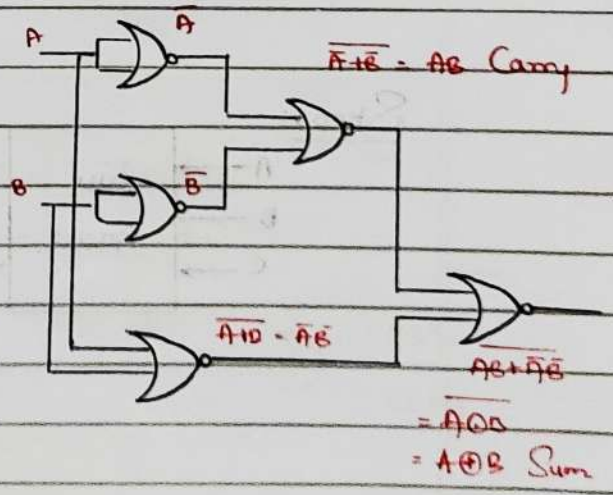 A
A̅
A̅+B̅ = AB Carry
B
B̅
A+B = A̅ B̅
AB + A̅B̅
= A⊙B
= A⊕B Sum